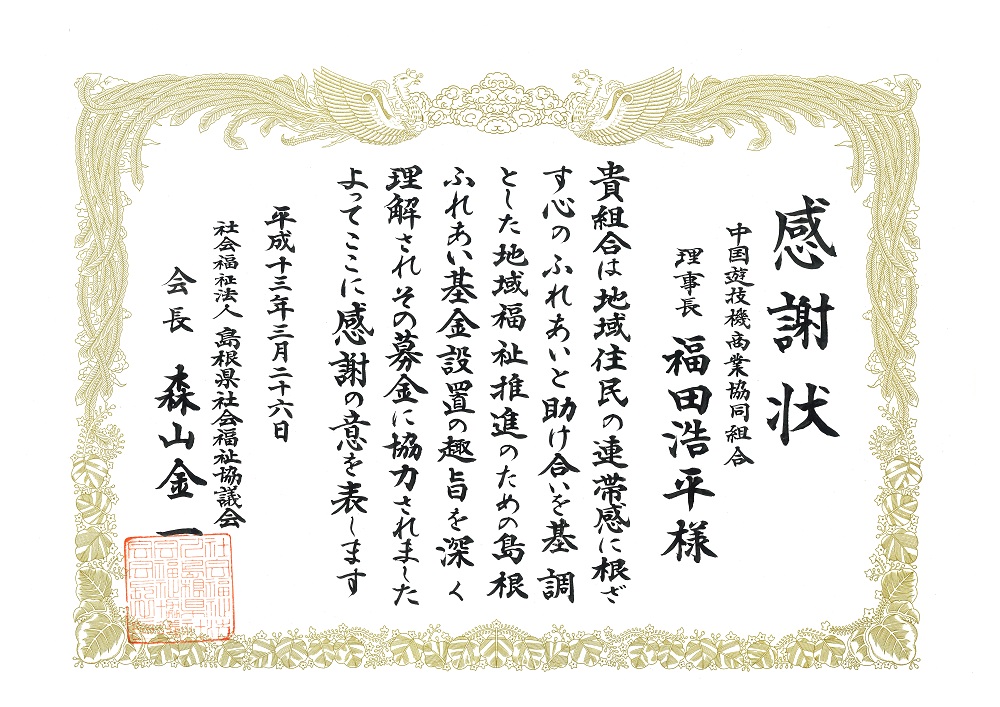 感謝状
中国遊技機商業協同組合
理事長 福田浩平様
貴組合は地域住民の連帯感に根ざ
す心のふれあいと助け合いを基調
とした地域福祉推進のための島根
ふれあい基金設置の趣旨を深く
理解されその募金に協力されました
よってここに感謝の意を表します
平成十三年三月二十六日
社会福祉法人 島根県社会福祉協議会
会長 森山金一